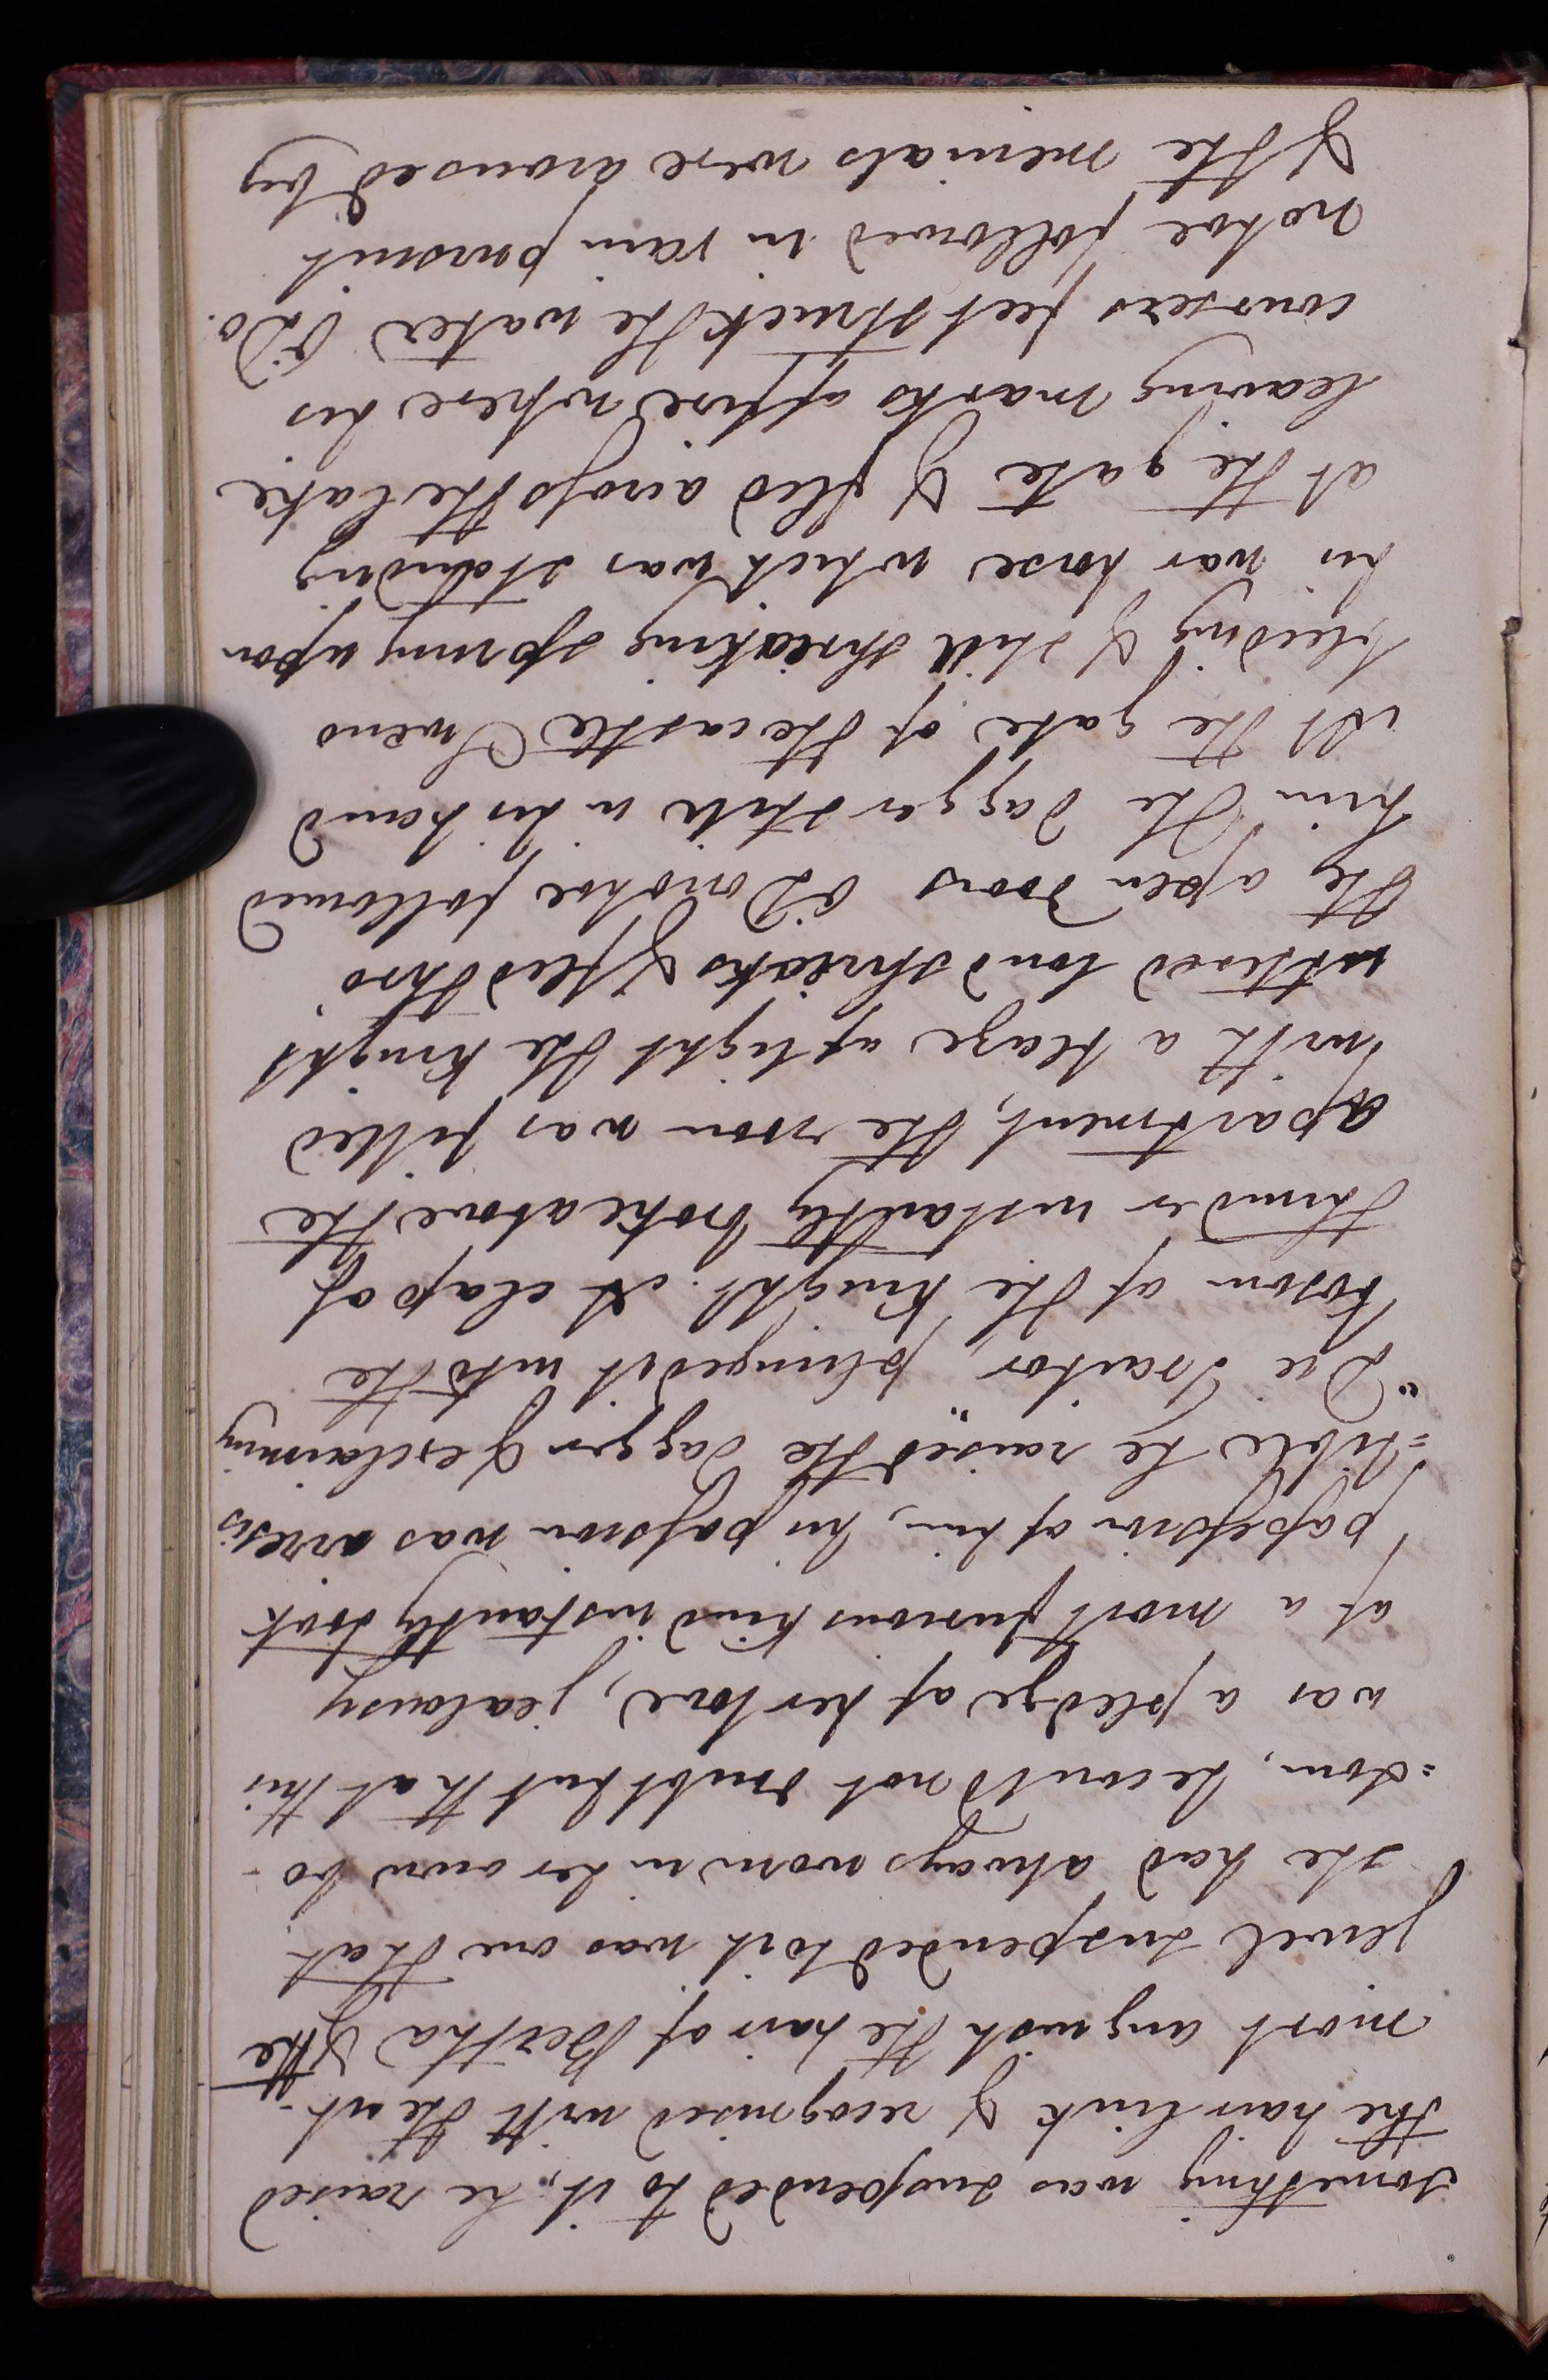 something was suspended to it, he raised
the hair link & recognised with the ut-
most anguish the hair of Bertha & the
jewel suspended to it was one that
she had always worn in her own bo-
=som, he could not doubt but that this
was a pledge of her love, jealousy
of a most furious kind instantly took
possession of him, his passion was irresis
=tible he raised the dagger & exclaiming
"Die Traitor", plunged it into the
bosom of the knight. A clap of
thunder instantly broke above the
apartment, the room was filled
with a blaze of light the knight
uttered loud shrieks & fled thro'
the open doors O'Donohoe followed
him the dagger still in his hand
at the gate of the castle Owens
bleeding & still shrieking sprung upon
his war horse which was standing
at the gate & fled across the lake
leaving marks of fire where his
coursers feet struck the water O'Do.
nohoe followed in vain pursuit
& the menials were aroused by